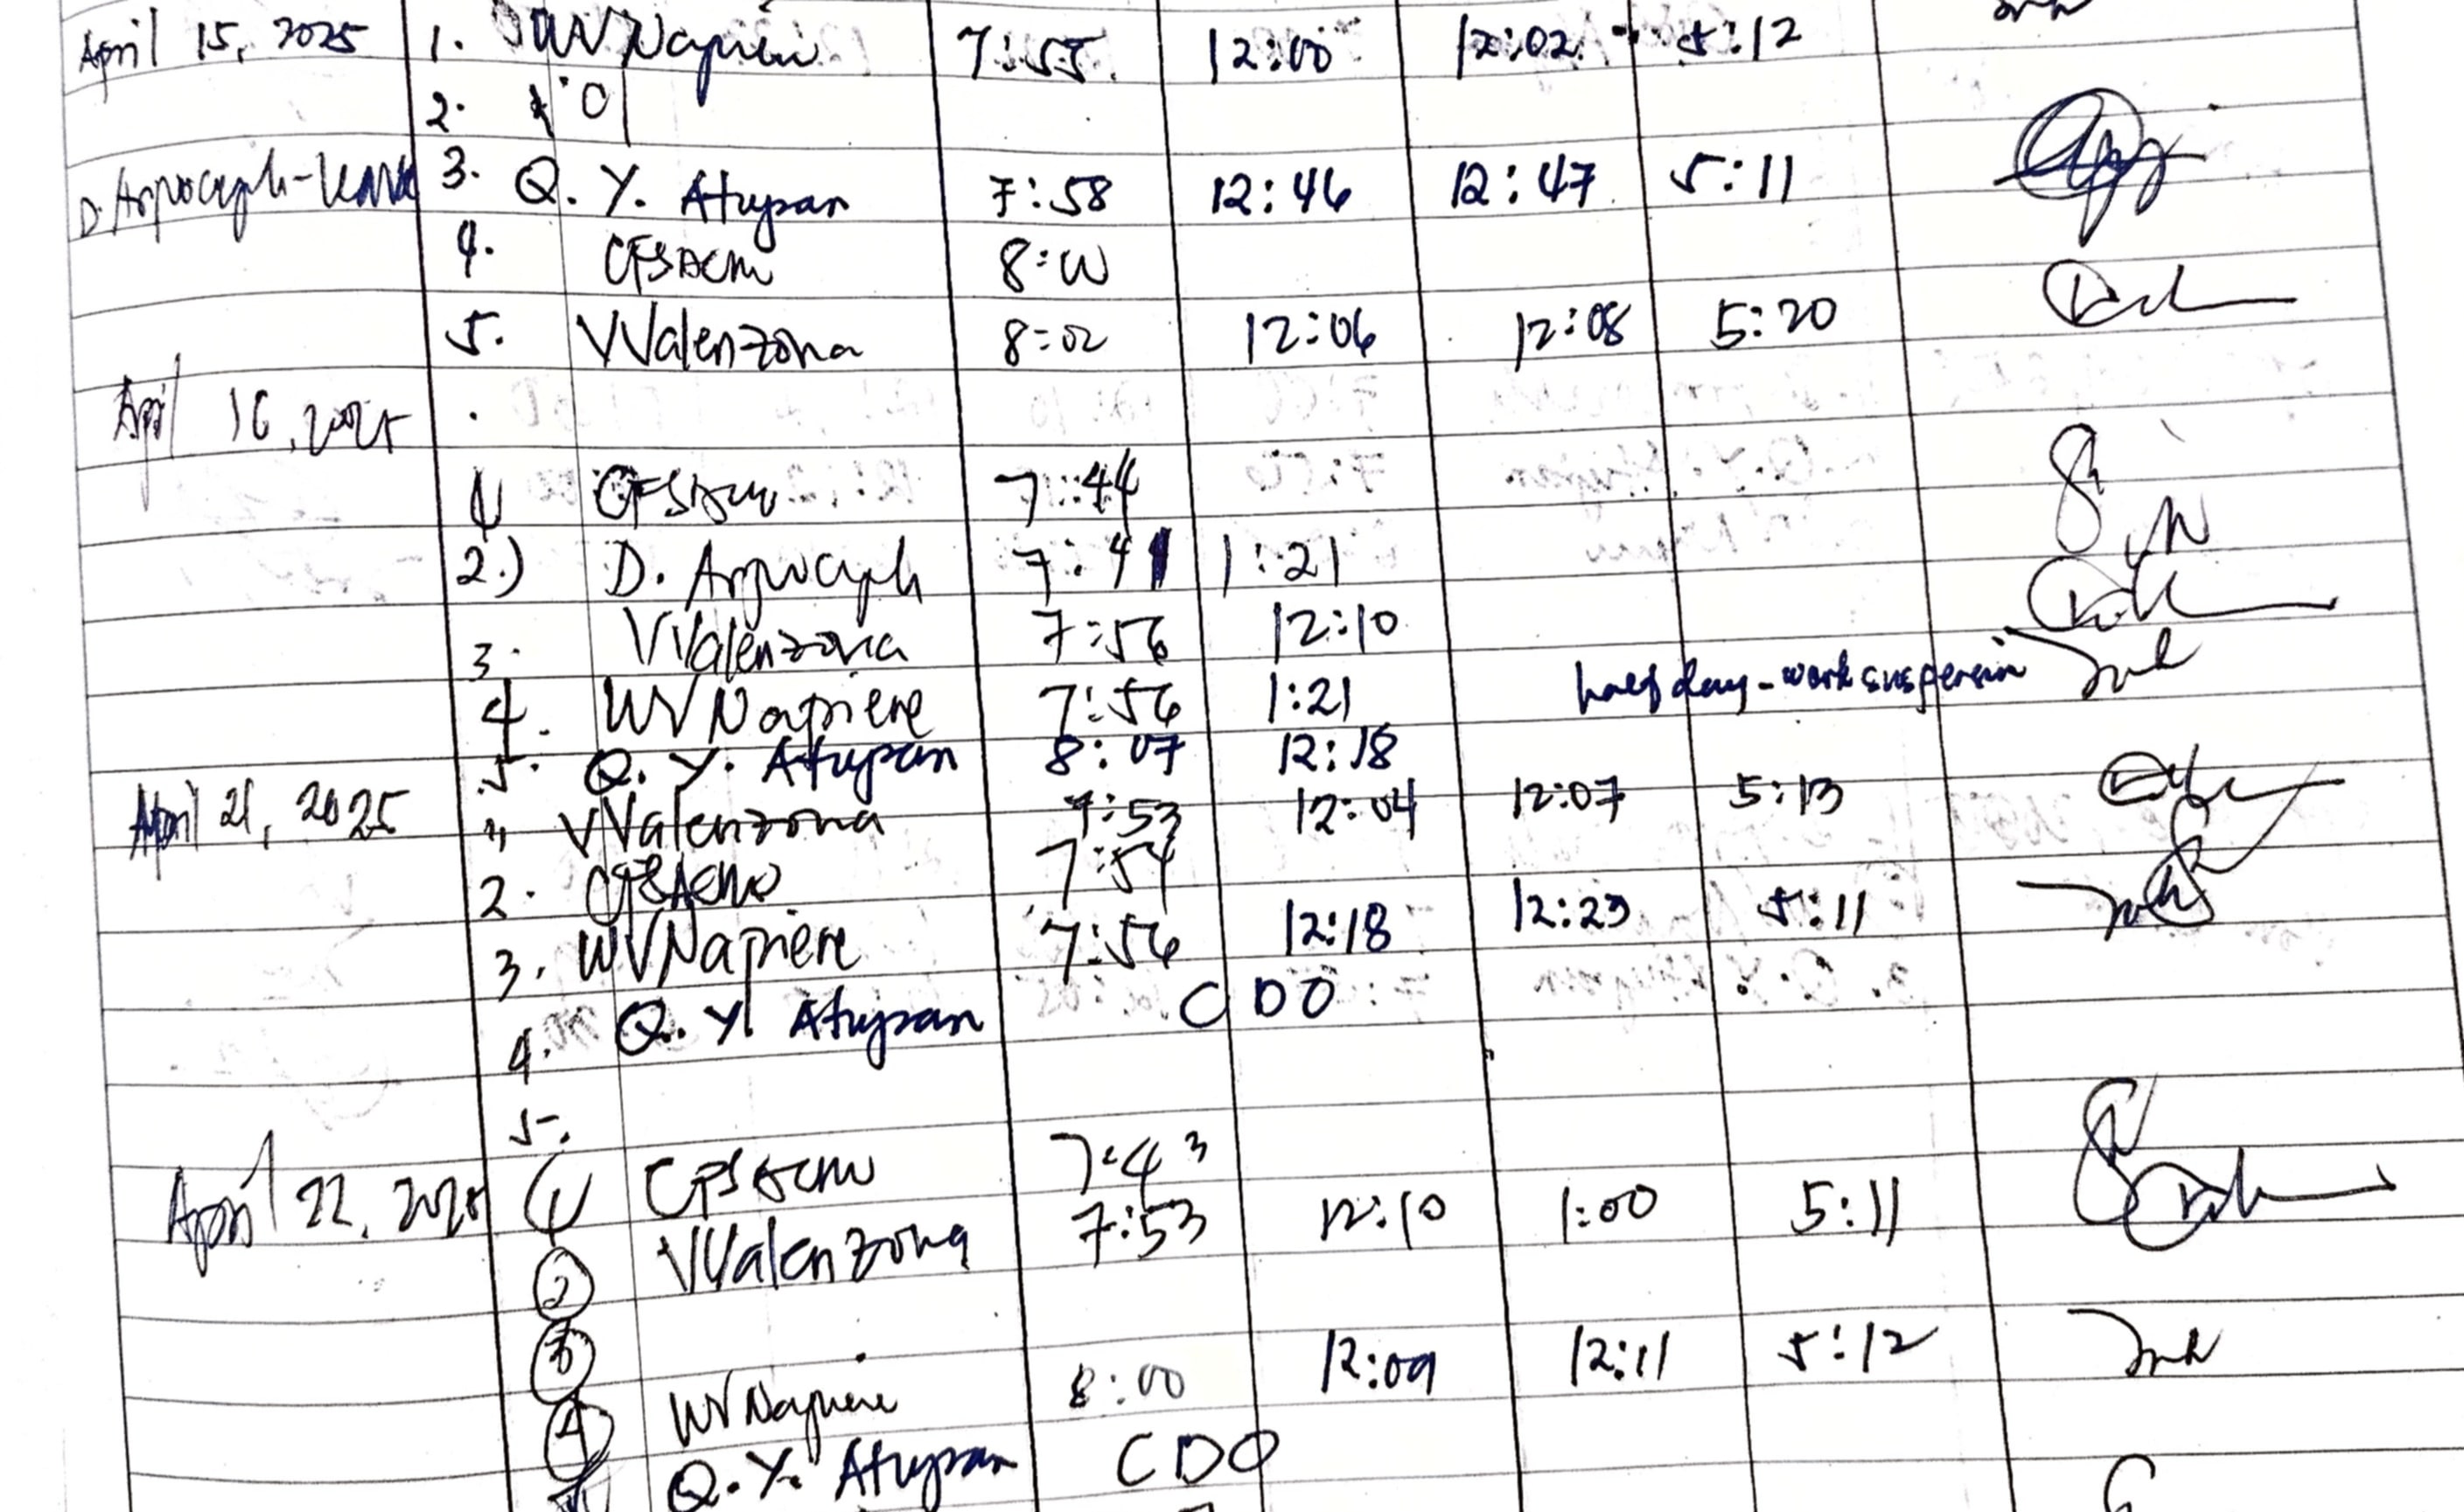 April 15, 2025 1. WV Napiere 7:55 12:00 12:02 5:12
2.
D. Arpoceph - leave 3. Q. Y. Atupan 7:58 12:46 12:47 5:11
4. 8:00
5. VValenzona 8:02 12:06 12:08 5:20
April 16, 2025
1 7:44
2.) D. Arpoceph 7:41 1:21
3. VValenzona 7:56 12:10
4. WV Napiere 7:56 1:21 half day - work suspension
5. Q. Y. Atupan 8:07 12:18
April 21, 2025 1. VValenzona 7:53 12:04 12:07 5:13
2. 7:54
3. WV Napiere 7:56 12:18 12:23 5:11
4. Q. Y. Atupan CDO
5.
April 22, 2025 1 7:43
2 VValenzona 7:53 12:10 1:00 5:11
3
4 WV Napiere 8:00 12:09 12:11 5:12
Q. Y. Atupan CDO